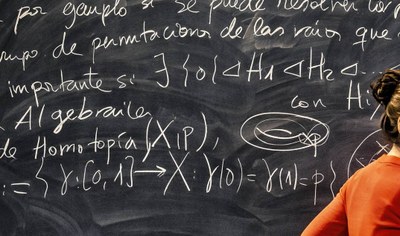 por ejemplo si se puede resolver
grupo de permutaciones de las raíces que
importante si ∃ {0} ◁ H1 ◁ H2 ◁ ...
con Hi
Algebraica
de Homotopía (X,p),
:= { γ:[0,1] → X : γ(0) = γ(1) = p {
xp